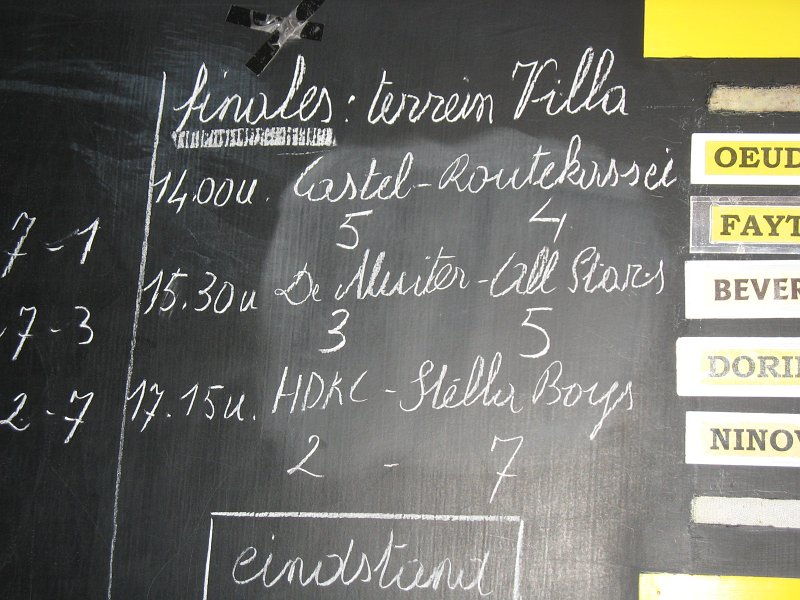 finales: terrein Villa
14.00u. Castel-Routekassei
5 4
15.30u De Muiter-All Stars
3 5
17.15u. HDKC-Stella Boys
2 - 7
eindstand
7-1
-7-3
2-7
OEUD
FAYT
BEVER
DORI
NINOV